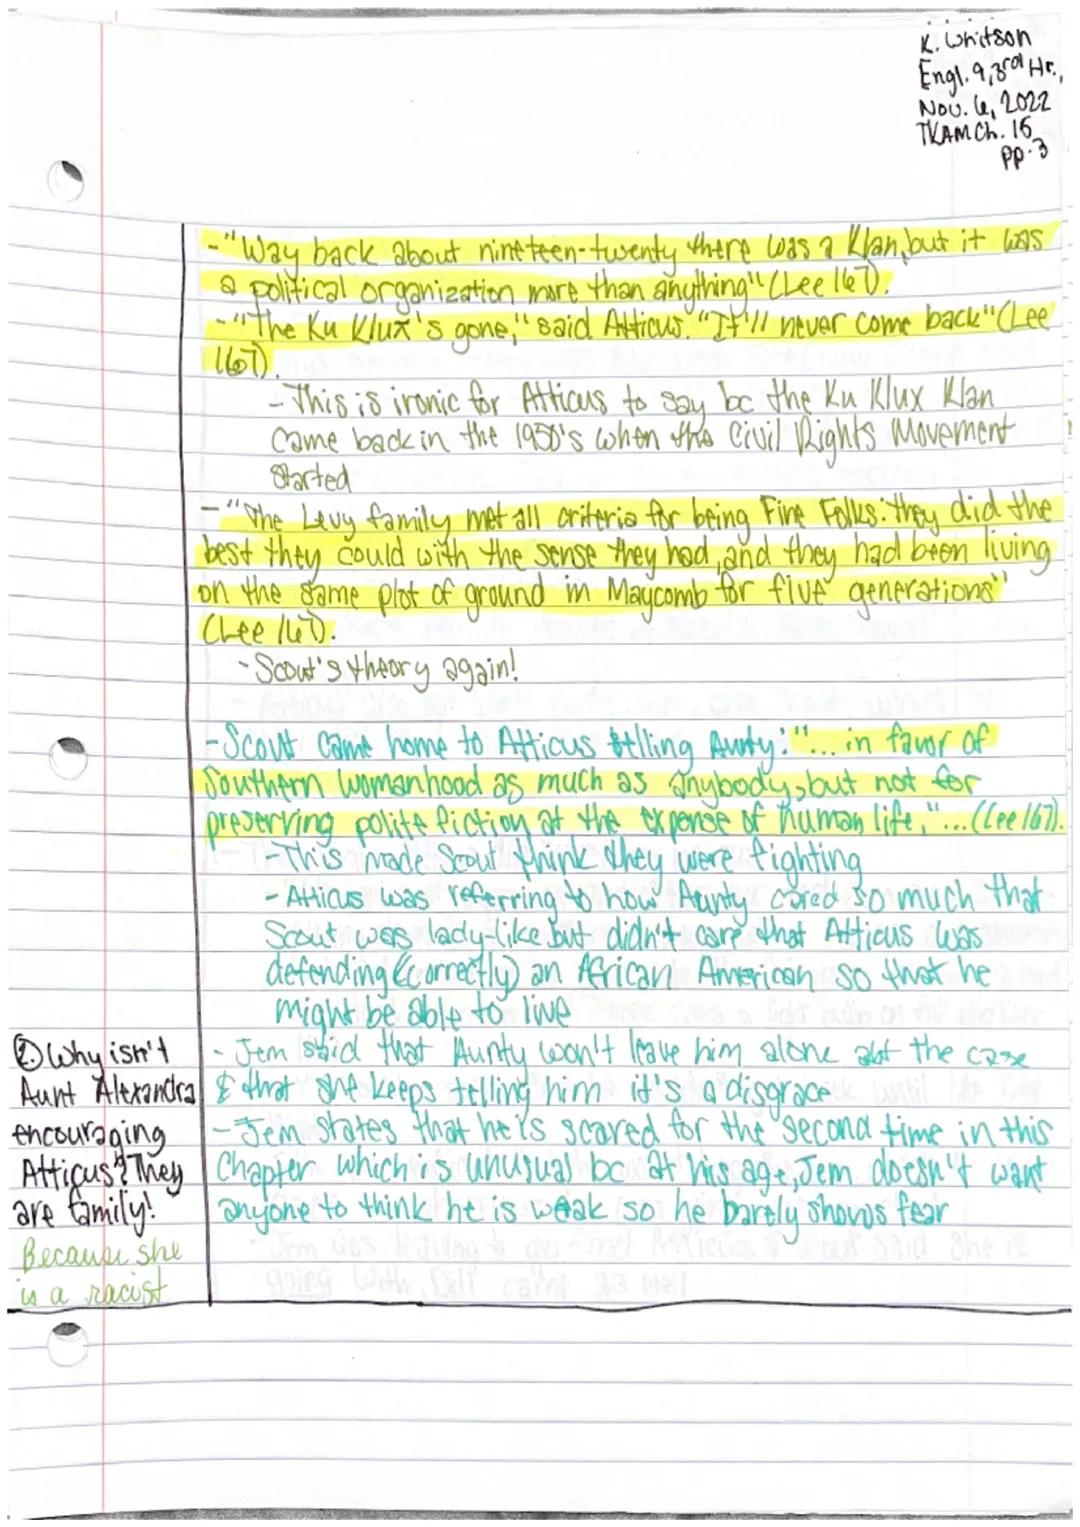 K. Whitson
Engl. 9, 3rd Hr.,
Nov. 6, 2022
TKAM Ch. 15
pp. 3
- "Way back about nineteen-twenty there was a Klan, but it was
a political organization more than anything" (Lee 167).
- "The Ku Klux's gone," said Atticus. "It'll never come back" (Lee
167).
- This is ironic for Atticus to say bc the Ku Klux Klan
came back in the 1950's when the Civil Rights Movement
started
- "The Levy family met all criteria for being Fine Folks: they did the
best they could with the sense they had, and they had been living
on the same plot of ground in Maycomb for five generations"
(Lee 167).
- Scout's theory again!
- Scout came home to Atticus telling Aunty: "... in favor of
Southern womanhood as much as anybody, but not for
preserving polite fiction at the expense of human life," ... (Lee 167).
- This made Scout think they were fighting
- Atticus was referring to how Aunty cared so much that
Scout was lady-like but didn't care that Atticus was
defending (correctly) an African American so that he
might be able to live
- Jem said that Aunty won't leave him alone abt the case
& that she keeps telling him it's a disgrace
- Jem states that he is scared for the second time in this
Chapter which is unusual bc at his age, Jem doesn't want
anyone to think he is weak so he barely shows fear
② Why isn't
Aunt Alexandra
encouraging
Atticus? They
are family!
Because she
is a racist